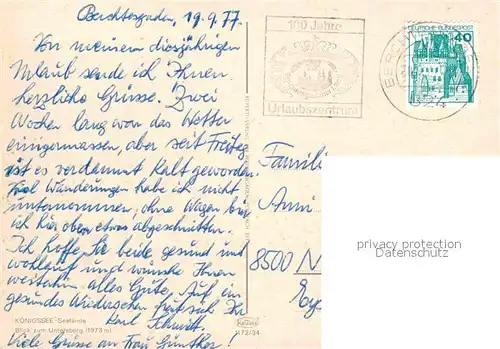 Berchtesgaden, 19.9.77
Von meinem diesjährigen
Urlaub sende ich Ihnen
herzliche Grüsse. Zwei
Wochen lang war das Wetter
einigermassen, aber seit Freitag
ist es verdammt kalt geworden.
Viel Wanderungen habe ich nicht
unternommen, ohne Wagen bin
ich hier oben etwas abgeschnitten.
Ich hoffe, Sie beide gesund und
wohlauf und wünsche Ihnen
weiterhin alles Gute. Auf ein
gesundes Wiedersehen freut sich Ihr
Karl Schmitt.
Viele Grüsse an Frau Günther!
KÖNIGSSEE - Seelände
Blick zum Untersberg (1973 m)
H72/34
100 Jahre
Urlaubszentrum
DEUTSCHE BUNDESPOST
40
BERCH
Famili
Anni
8500 N
privacy protection
Datenschutz